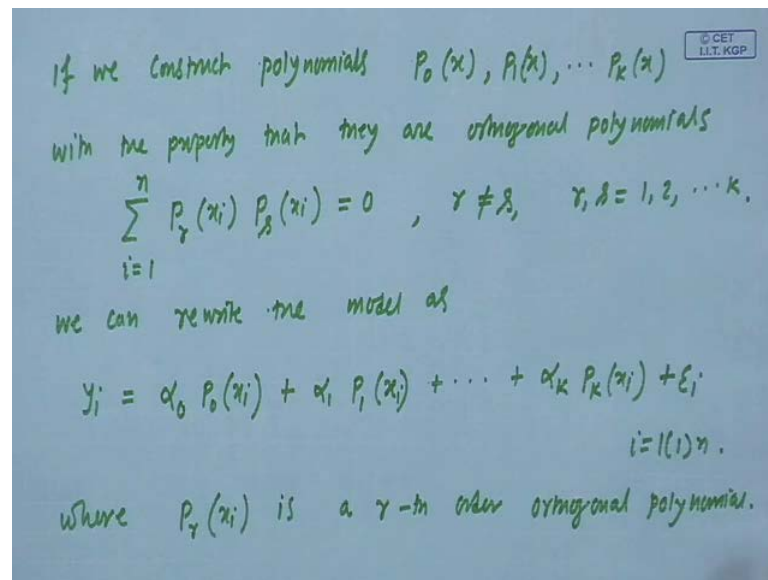 © CET
I.I.T. KGP
If we construct polynomials P₀(x), P₁(x), ... Pₖ(x)
with the property that they are orthogonal polynomials
∑ᵢ₌₁ⁿ Pᵣ(xᵢ) Pₛ(xᵢ) = 0 , r ≠ s, r, s = 1, 2, ... k.
we can rewrite the model as
yᵢ = α₀ P₀(xᵢ) + α₁ P₁(xᵢ) + ... + αₖ Pₖ(xᵢ) + εᵢ
i = 1(1)n.
where Pᵣ(xᵢ) is a r-th order orthogonal polynomial.